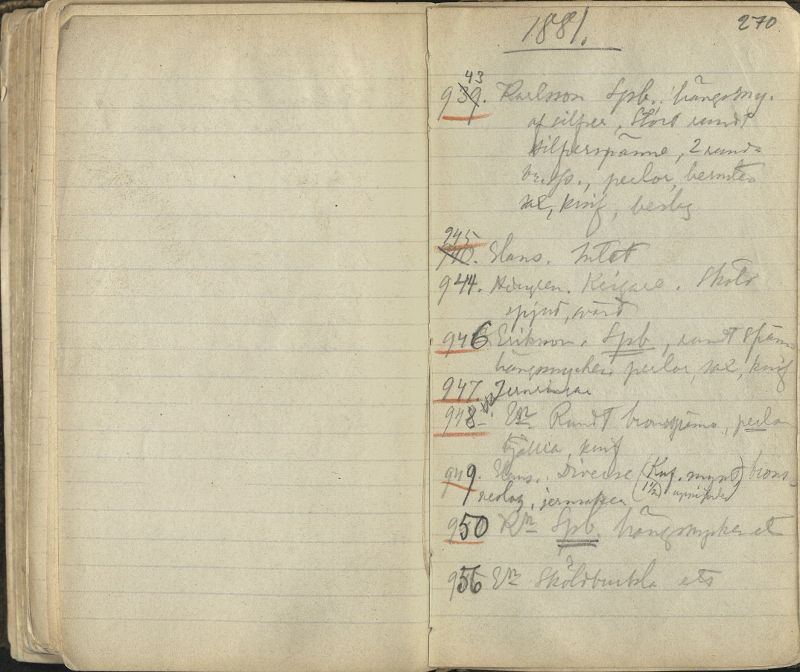 1881.
270
43
939. Karlsson Spb., hängsmy.
af silfver, Stort rundt
silfverspänne, 2 runda
perlor, bernsten
sax, knif, beslag
945
940. Hans. Intet
944. Krigare. Sköld
spjut, svärd
946 Erikson. Spb, rundt spänne
hängsmycken, perlor, sax, knif
947.
948 En. Rundt bronsspänne, perlor
knif
949. Hans. Diverse (Kuf. mynt) brons-
beslag, jernsaker (1½)
950 Kn Spb hängsmycken etc
956 En Sköldbuckla etc